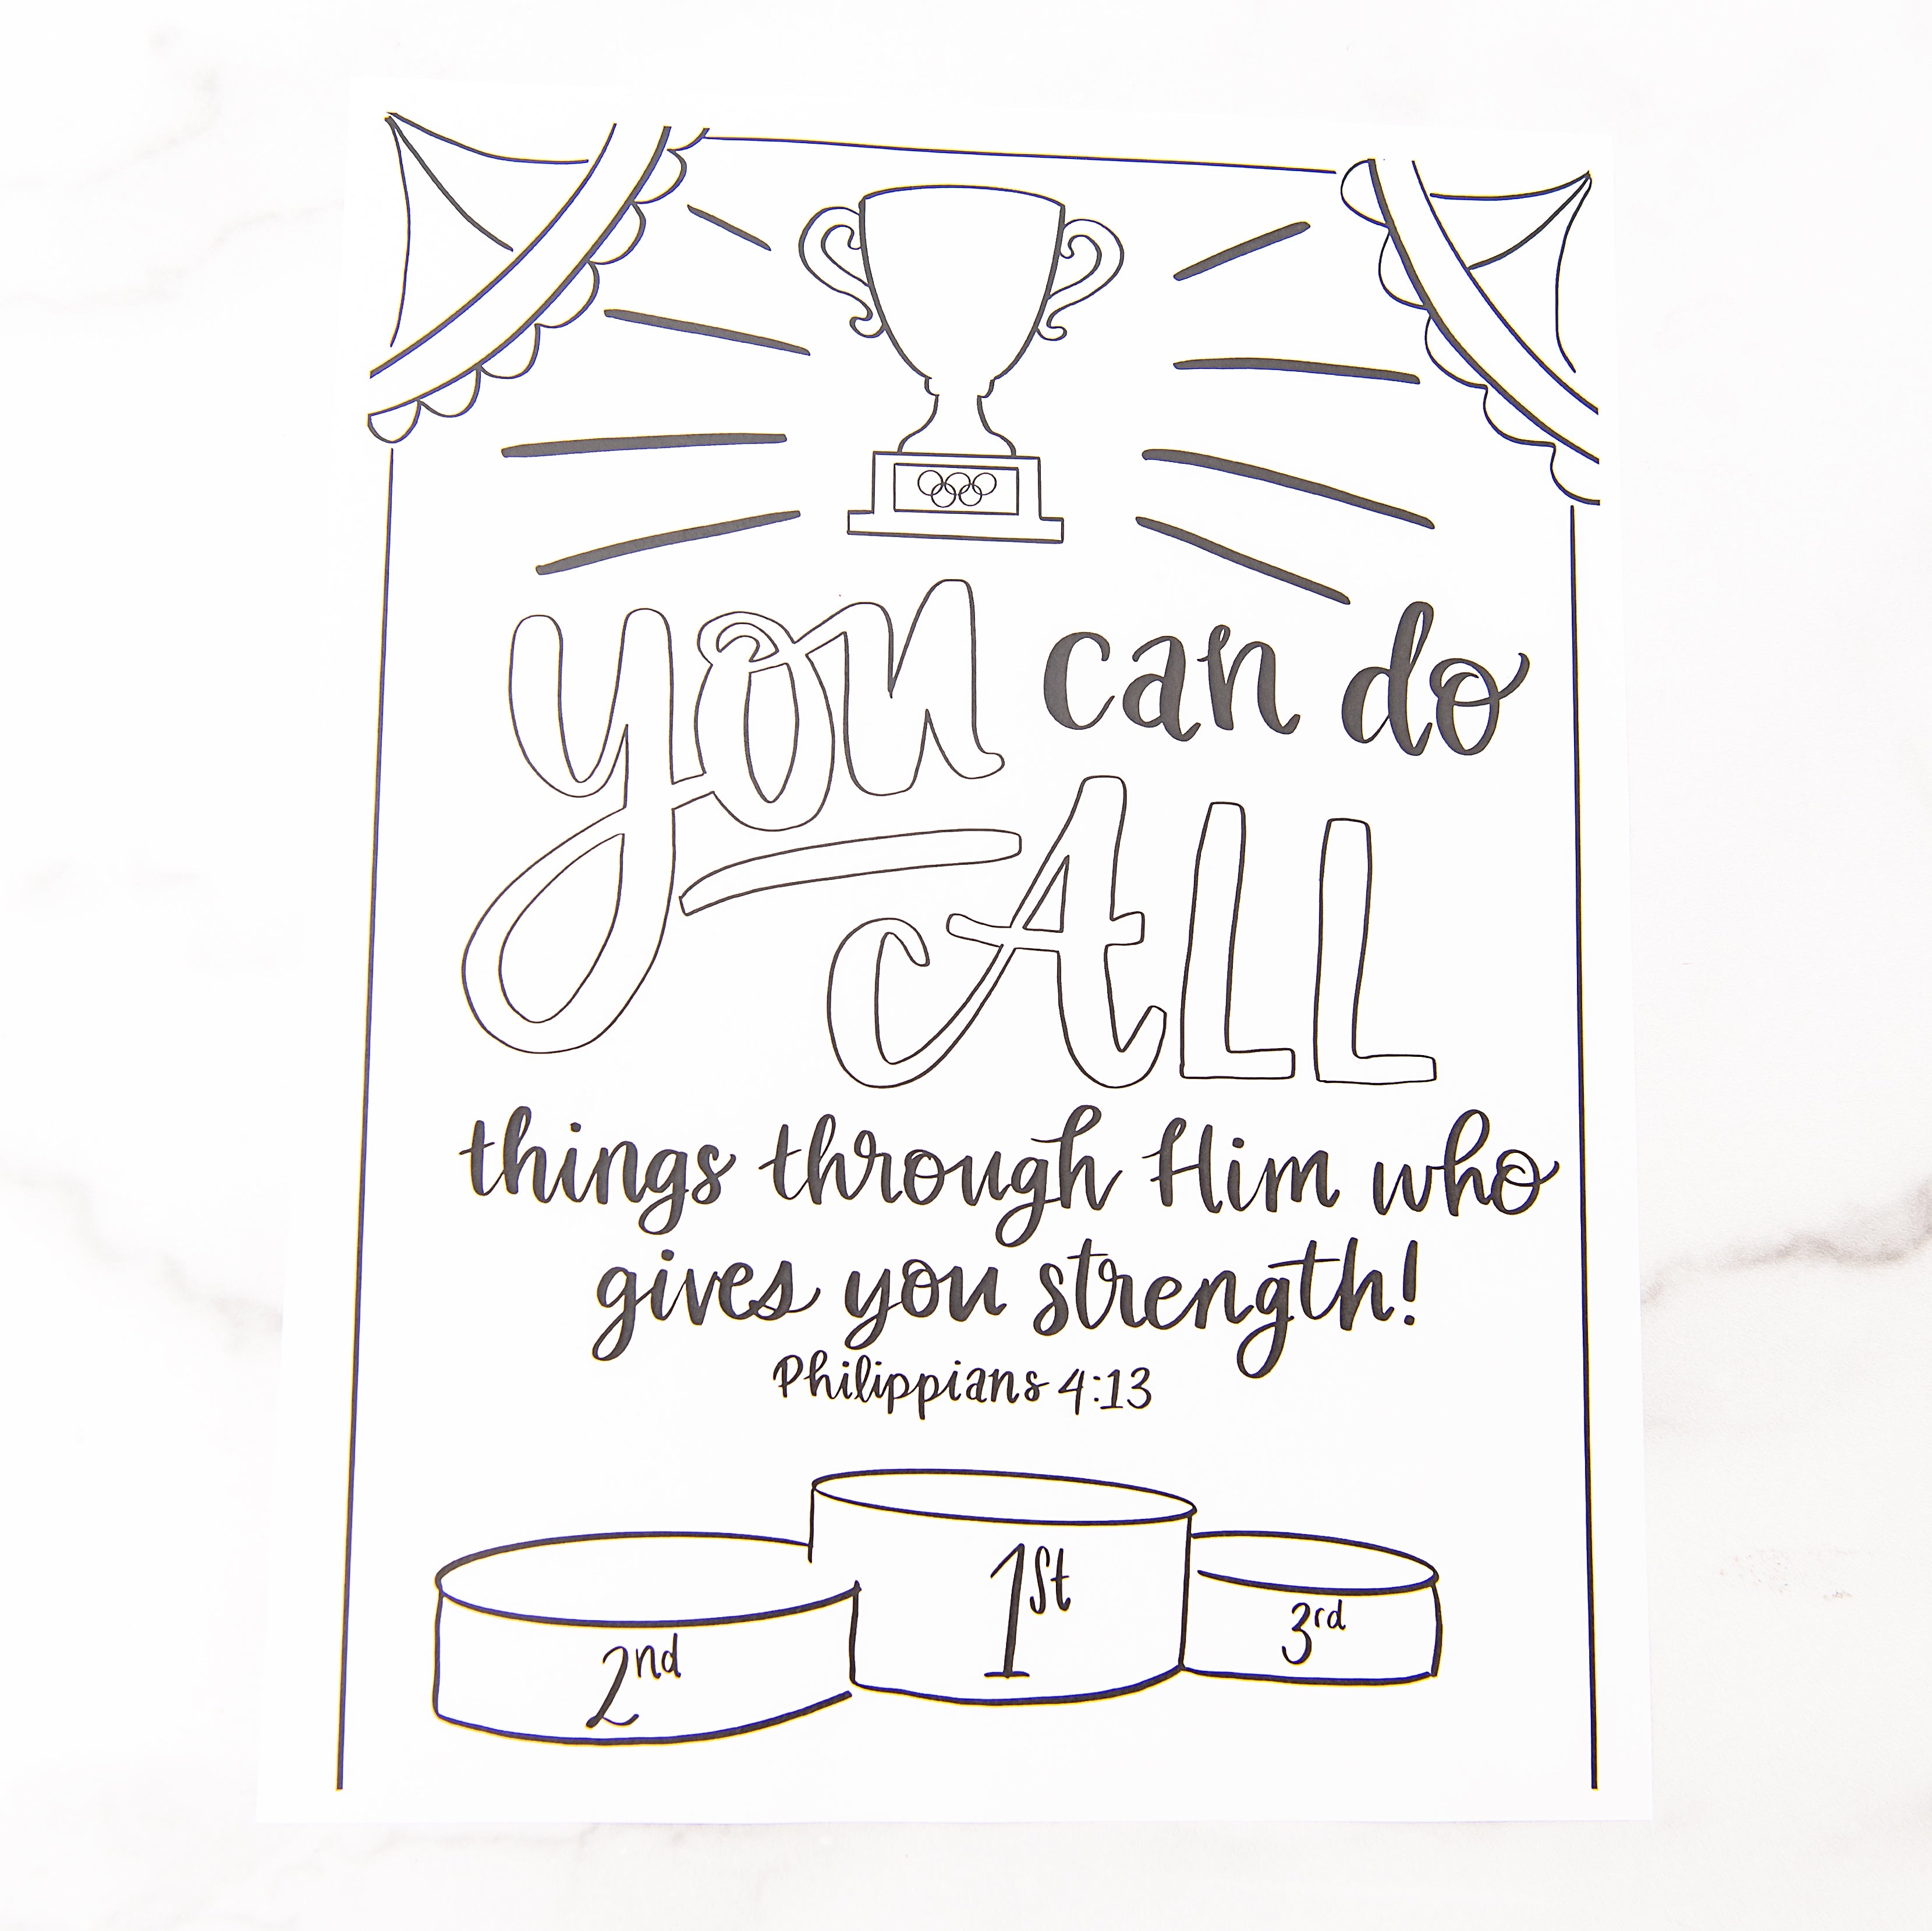 you can do
ALL
things through Him who
gives you strength!
Philippians 4:13
1st
2nd
3rd